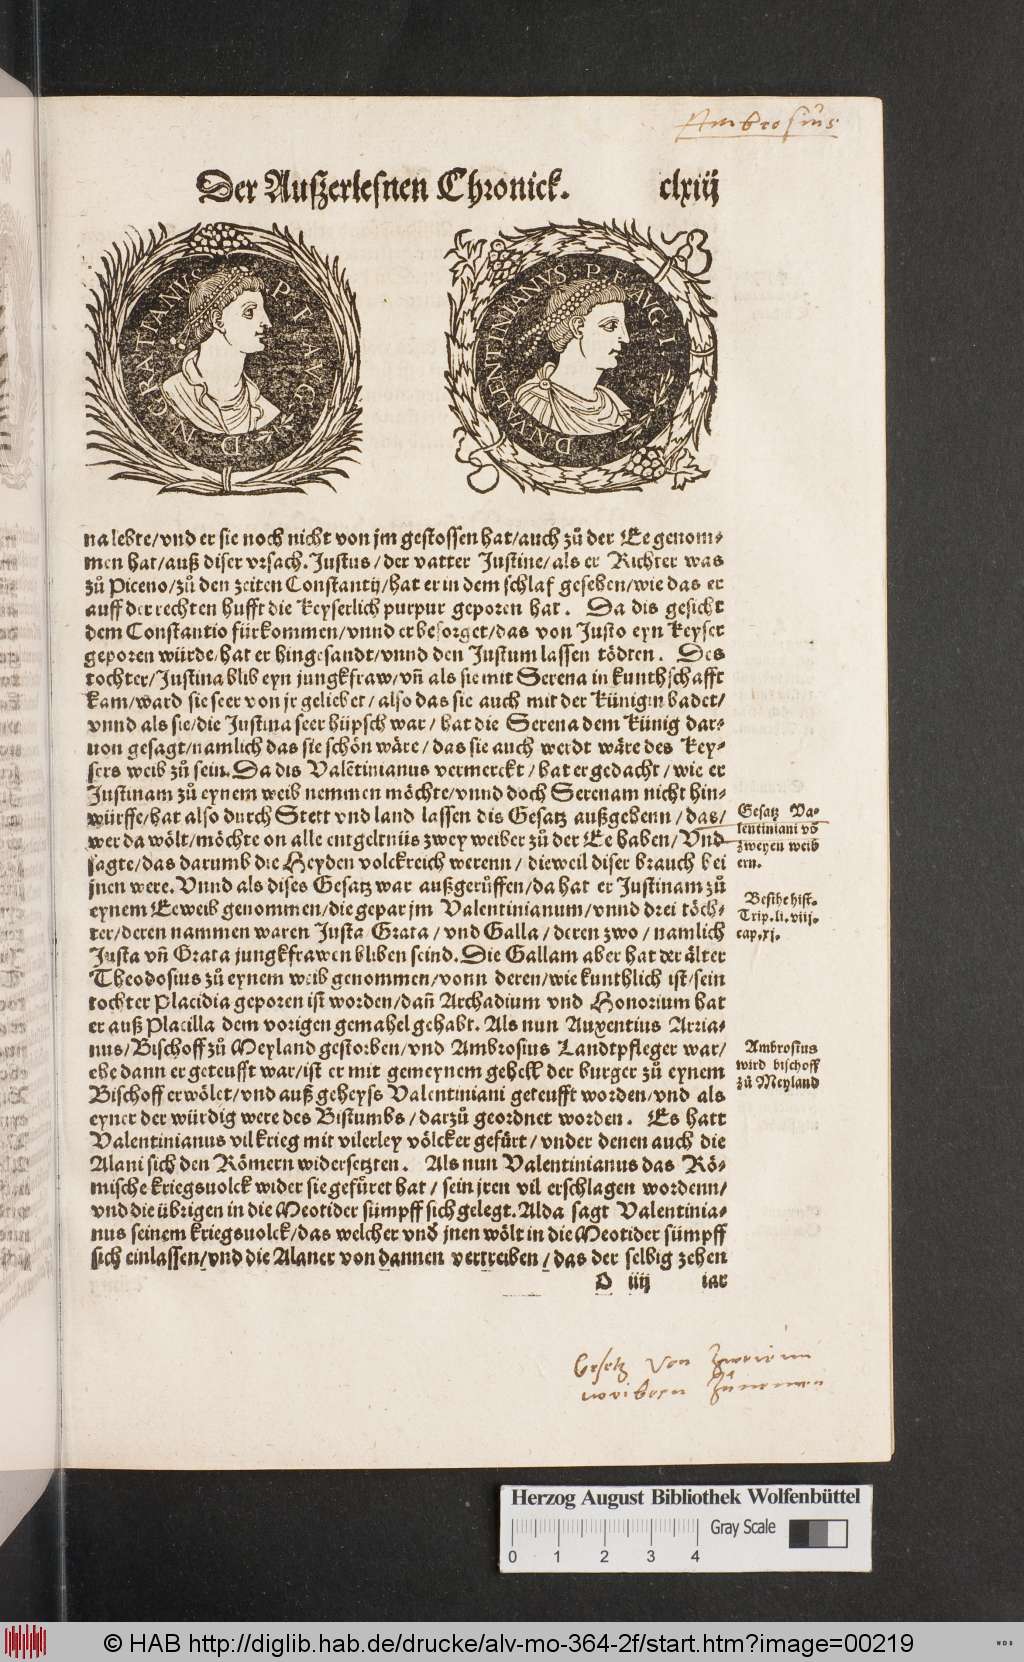 Ambrosius
Der Außerlesnen Chronick. clxiij
D. N. GRATIANVS P. F. AVG.
D. N. VALENTINIANVS. P. F. AVG. I
na lebte/vnd er sie noch nicht von jm gestossen hat/auch zů der Ee genom⸗
men hat/auß diser vrsach. Justus/der vatter Justine/als er Richter was
zů Piceno/zů den zeiten Constantij/hat er in dem schlaf gesehen/wie das er
auff der rechten hufft die Keyserlich purpur geporen hat. Da dis gesicht
dem Constantio fürkommen/vnnd er besorget/das von Justo eyn Keyser
geporen würde/hat er hingesandt/vnnd den Justum lassen tödten. Des
tochter/Justina blib eyn jungkfraw/vñ als sie mit Serena in kunthschafft
kam/ward sie seer von jr geliebet/also das sie auch mit der Künigin badet/
vnnd als sie/die Justina seer hüpsch war/hat die Serena dem Künig dar⸗
uon gesagt/namlich das sie schön wäre/das sie auch werdt wäre des Key⸗
sers weib zů sein. Da dis Valẽtinianus vermerckt/hat er gedacht/wie er
Justinam zů eynem weib nemmen möchte/vnnd doch Serenam nicht hin⸗
würffe/hat also durch Stett vnd land lassen dis Gesatz außgebenn/das/
wer da wölt/möchte on alle entgeltnüs zwey weiber zů der Ee haben/Vnd
sagte/das darumb die Heyden volckreich werenn/dieweil diser brauch bei
jnen were. Vnnd als dises Gesatz war außgerůffen/da hat er Justinam zů
eynem Eeweib genommen/die gepar jm Valentinianum/vnnd drei töch⸗
ter/deren nammen waren Justa Grata/vnd Galla/deren zwo/namlich
Justa vñ Grata jungkfrawen bliben seind. Die Gallam aber hat der älter
Theodosius zů eynem weib genommen/vonn deren/wie kunthlich ist/sein
tochter Placidia geporen ist worden/dañ Archadium vnd Honorium hat
er auß Placilla dem vorigen gemahel gehabt. Als nun Auxentius Arria⸗
nus/Bischoff zů Meyland gestorben/vnd Ambrosius Landtpfleger war/
ehe dann er geteufft war/ist er mit gemeynem gehell der burger zů eynem
Bischoff erwölet/vnd auß geheyss Valentiniani geteufft worden/vnd als
eyner der würdig were des Bistumbs/darzů geordnet worden. Es hatt
Valentinianus vil krieg mit vilerley völcker gefürt/vnder denen auch die
Alani sich den Römern widersetzten. Als nun Valentinianus das Rö⸗
mische kriegsuolck wider sie gefüret hat/sein jren vil erschlagen wordenn/
vnd die übrigen in die Meotider sümpff sich gelegt. Alda sagt Valentinia⸗
nus seinem kriegsuolck/das welcher vnd̃ jnen wölt in die Meotider sümpff
sich einlassen/vnd die Alaner von dannen vertreiben/das der selbig zehen
D iiij iar
Gesatz Va⸗
lentiniani võ
zweyen weib
ern.
Besihe hist.
Trip. li. viij.
cap. xj.
Ambrosius
wird bischoff
zů Meyland
Gesetz von zweien
weibern zů nemen
Herzog August Bibliothek Wolfenbüttel
Gray Scale
0 1 2 3 4
© HAB http://diglib.hab.de/drucke/alv-mo-364-2f/start.htm?image=00219